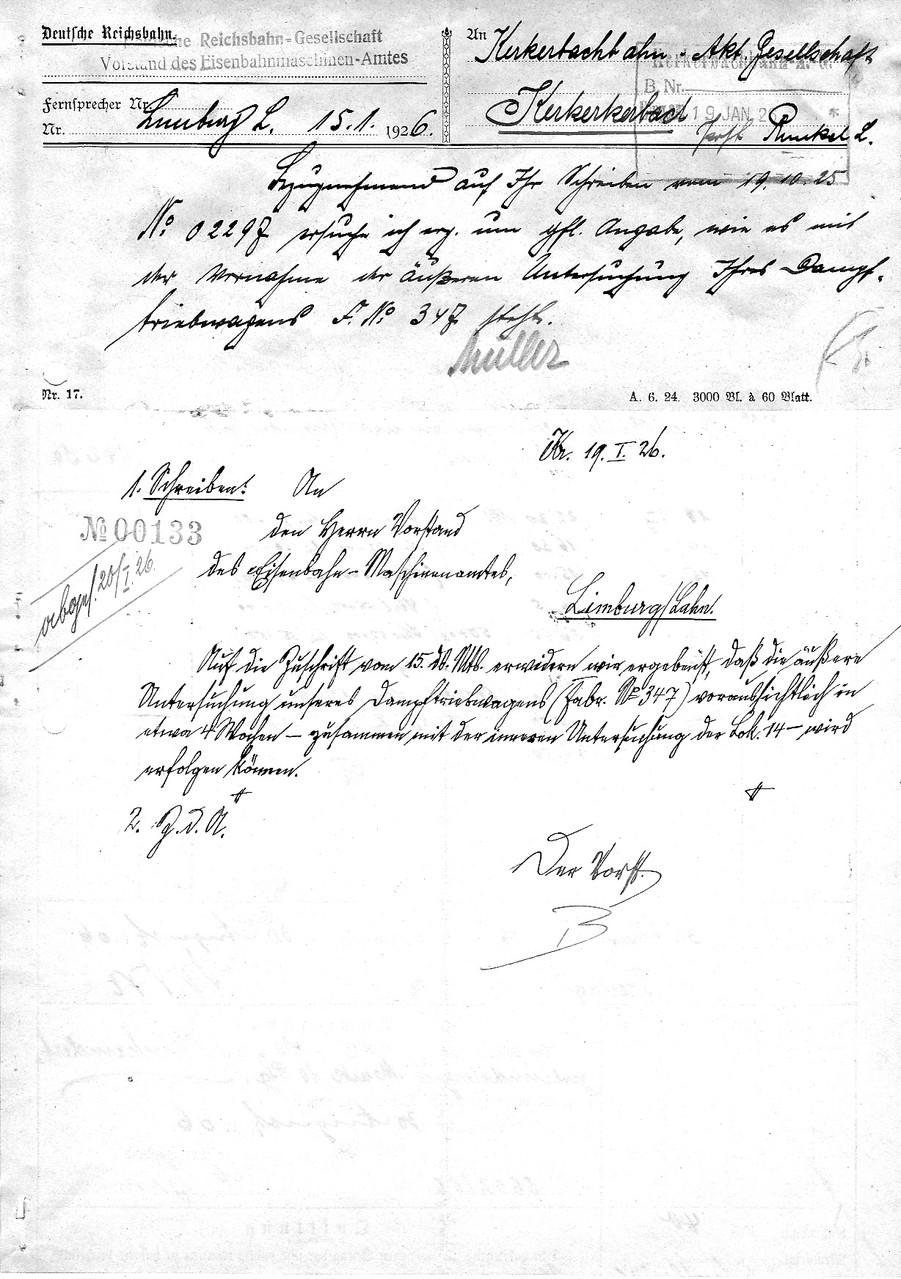 Deutsche Reichsbahn.
Deutsche Reichsbahn-Gesellschaft
Vorstand des Eisenbahnmaschinen-Amtes
Fernsprecher Nr.
Nr. Limburg L. 15.1. 1926.
An Kerkerbachbahn-Akt. Gesellschaft
Kerkerbachbahn-A.G.
B. Nr.
19 JAN. 2
Kerkerkerbach
Post Runkel L.
Bezugnehmend auf Ihr Schreiben vom 19.10.25
No 02297 ersuche ich erg. um gfl. Angabe, wie es mit
der Vornahme der äußeren Untersuchung Ihres Dampf-
triebwagens F. No 347 steht.
Müller
Nr. 17.
A. 6. 24. 3000 Bl. à 60 Blatt.
Kr. 19. I. 26.
1. Schreiben: An
No 00133
den Herrn Vorstand
des Eisenbahn-Maschinenamtes,
abges. 20/I.26.
Limburg/Lahn.
Auf die Zuschrift vom 15. ds. Mts. erwidern wir ergebenst, daß die äußere
Untersuchung unseres Dampftriebwagens (Fabr. No 347) voraussichtlich in
etwa 4 Wochen – zusammen mit der inneren Untersuchung der Lok. 14 – wird
erfolgen können.
2. Z. d. A.
Der Vorst.
B